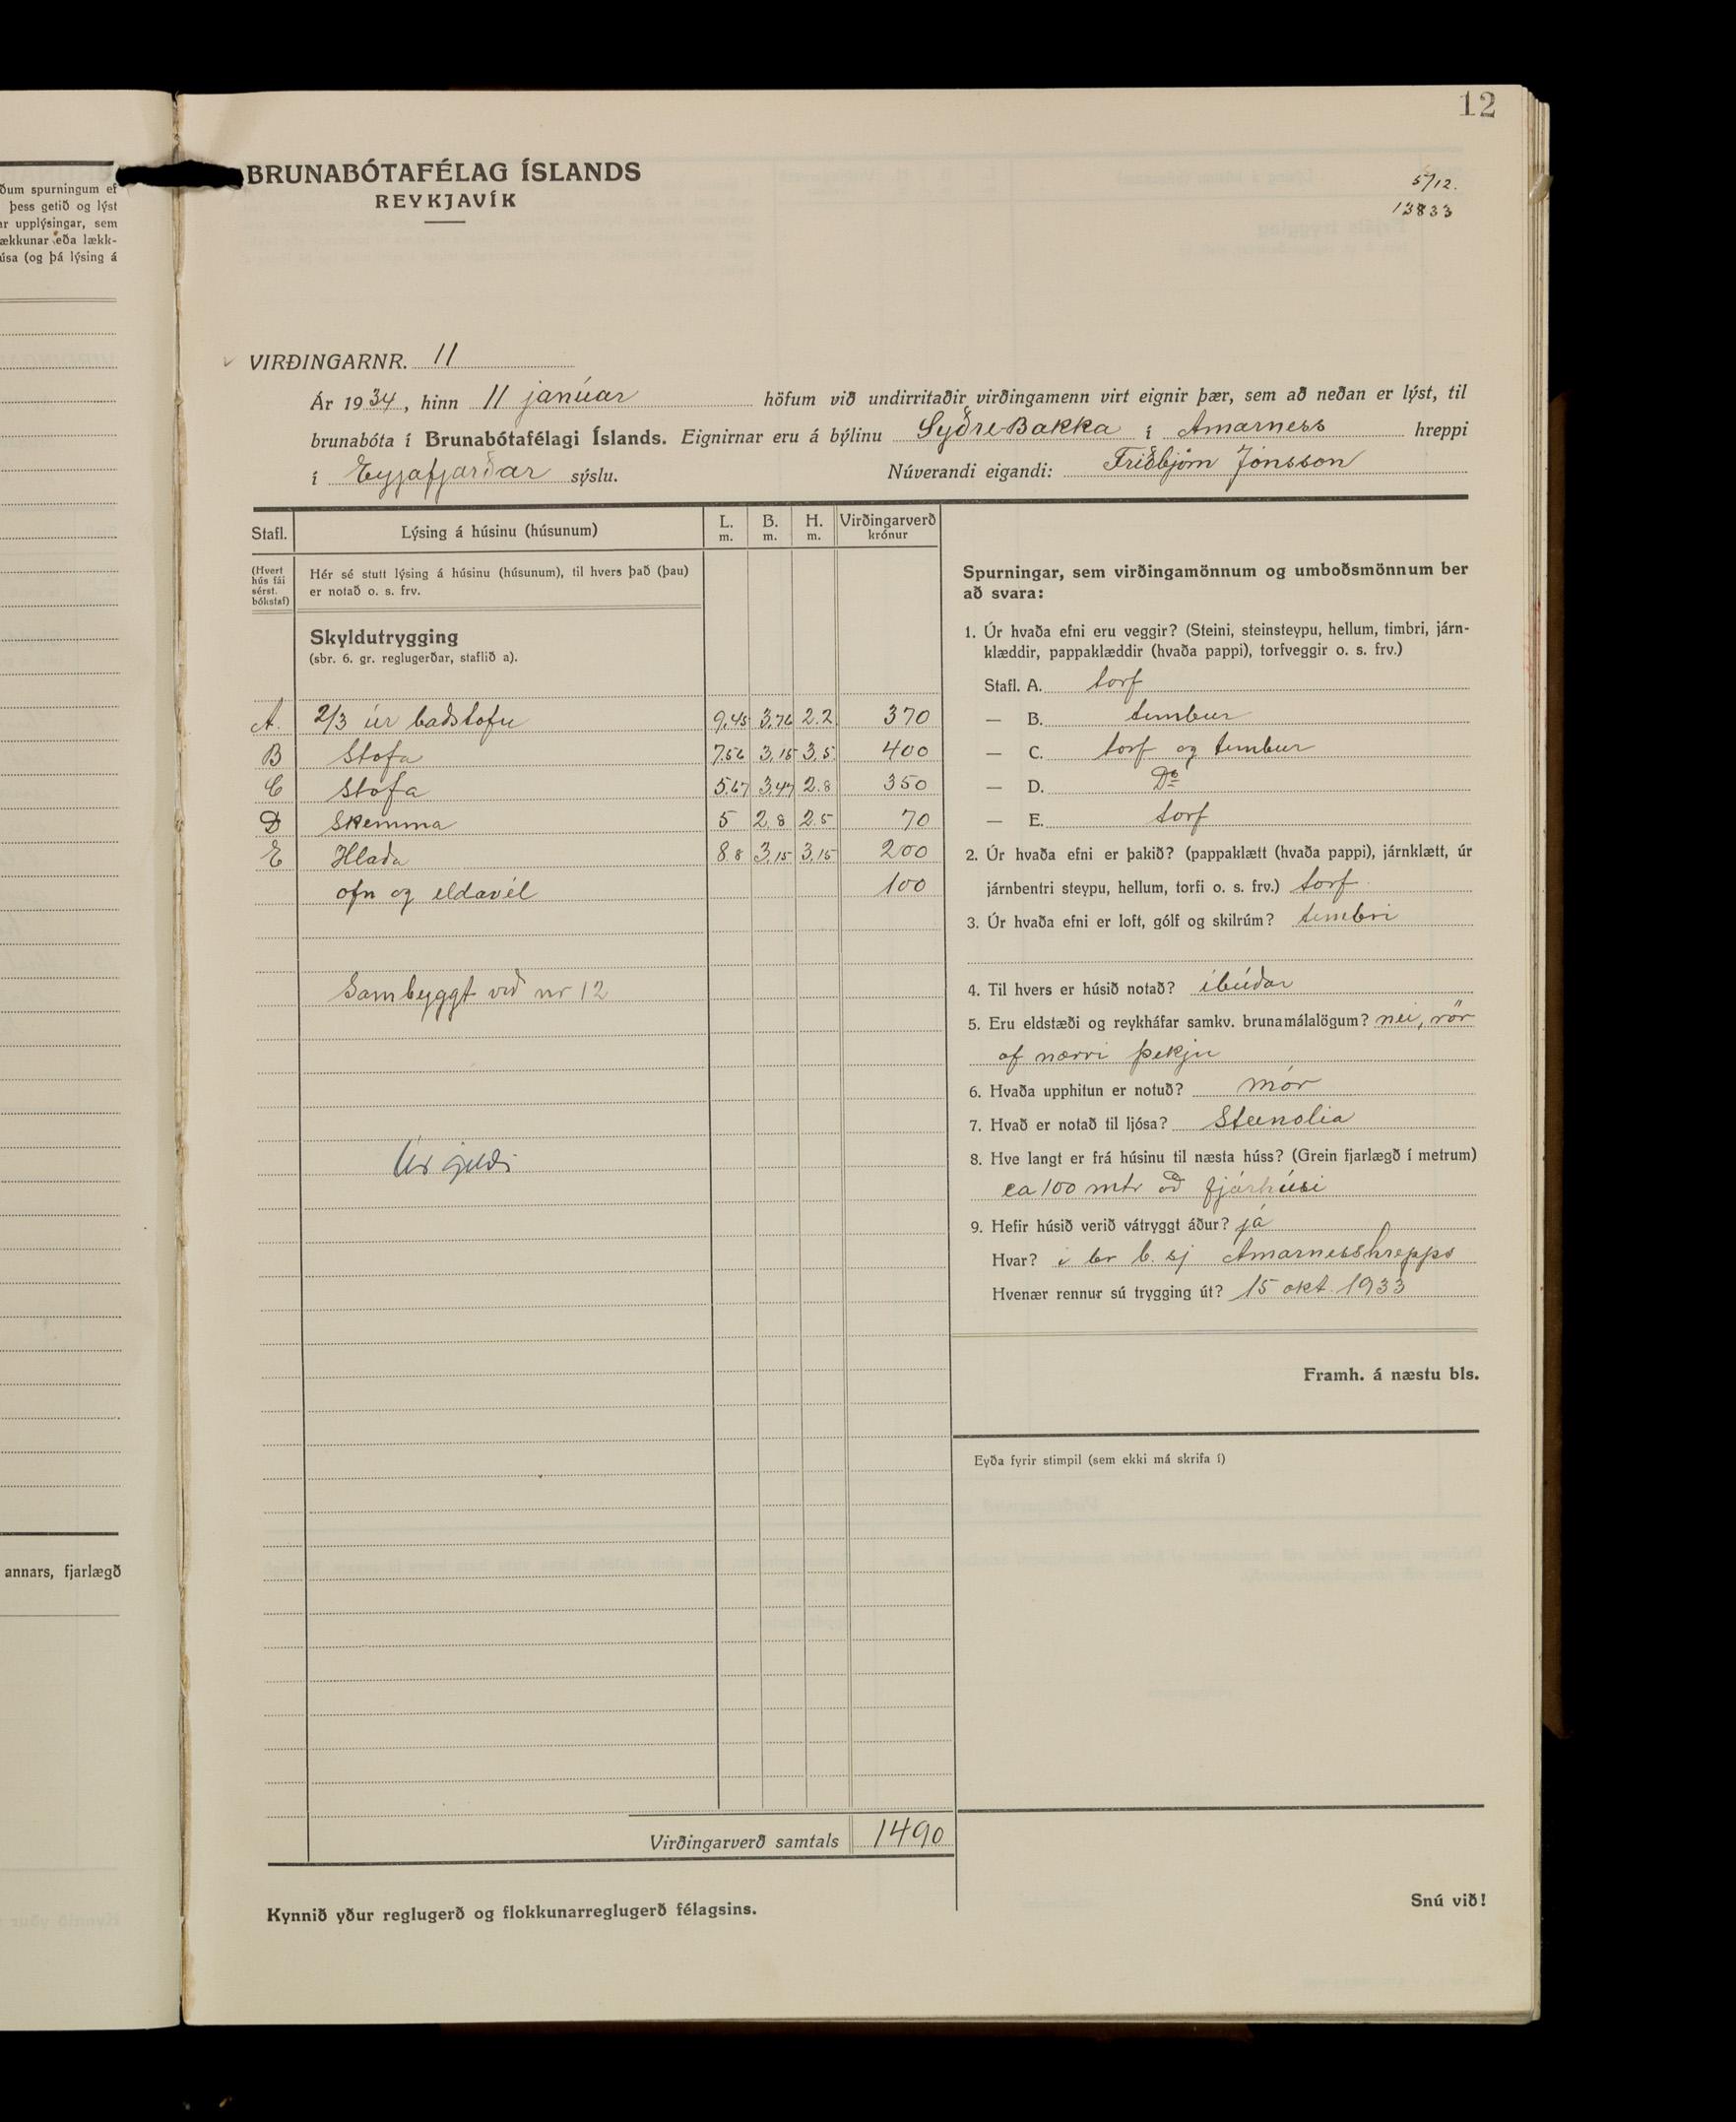 12
BRUNABÓTAFÉLAG ÍSLANDS
REYKJAVÍK
5/12.
13833
ðum spurningum ef
þess getið og lýst
ar upplýsingar, sem
ækkunar eða lækk-
úsa (og þá lýsing á
annars, fjarlægð
VIRÐINGARNR. 11
Ár 1934, hinn 11 janúar höfum við undirritaðir virðingamenn virt eignir þær, sem að neðan er lýst, til
brunabóta í Brunabótafélagi Íslands. Eignirnar eru á býlinu Syðre-Bakka í Arnarness hreppi
í Eyjafjarðar sýslu. Núverandi eigandi: Friðbjörn Jónsson
Stafl. Lýsing á húsinu (húsunum) L. m. B. m. H. m. Virðingarverð krónur
(Hvert hús fái sérst. bókstaf)
Hér sé stutt lýsing á húsinu (húsunum), til hvers það (þau)
er notað o. s. frv.
Skyldutrygging
(sbr. 6. gr. reglugerðar, staflið a).
A. 2/3 úr baðstofu 9,45 3,76 2.2 370
B Stofa 7.56 3,15 3,5 400
C Stofa 5.67 3,47 2.8 350
D Skemma 5 2,8 2.5 70
E Hlaða 8.8 3,15 3,15 200
ofn og eldavél 100
Sambyggt við nr 12
Úr gildi
Virðingarverð samtals 1490
Kynnið yður reglugerð og flokkunarreglugerð félagsins.
Spurningar, sem virðingamönnum og umboðsmönnum ber
að svara:
1. Úr hvaða efni eru veggir? (Steini, steinsteypu, hellum, timbri, járn-
klæddir, pappaklæddir (hvaða pappi), torfveggir o. s. frv.)
Stafl. A. torf
— B. timbur
— C. torf og timbur
— D. Do
— E. torf
2. Úr hvaða efni er þakið? (pappaklætt (hvaða pappi), járnklætt, úr
járnbentri steypu, hellum, torfi o. s. frv.) torf
3. Úr hvaða efni er loft, gólf og skilrúm? timbri
4. Til hvers er húsið notað? íbúðar
5. Eru eldstæði og reykháfar samkv. brunamálalögum? nei, rör
of nærri þekju
6. Hvaða upphitun er notuð? mór
7. Hvað er notað til ljósa? Steinolia
8. Hve langt er frá húsinu til næsta húss? (Grein fjarlægð í metrum)
ca 100 mtr að fjárhúsi
9. Hefir húsið verið vátryggt áður? já
Hvar? í br b. sj Arnarnesshrepps
Hvenær rennur sú trygging út? 15 okt. 1933
Framh. á næstu bls.
Eyða fyrir stimpil (sem ekki má skrifa í)
Snú við!